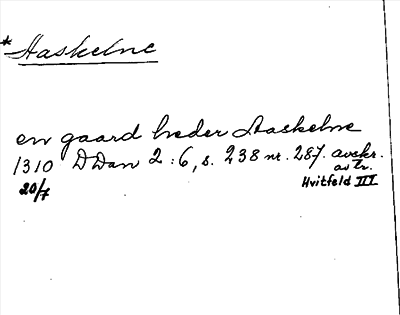 *Aaskelne
en gaard heder Aaskelne
1310 DDan 2:6, s. 238 nr. 287. avskr.
20/7 av tr.
Hvitfeld III